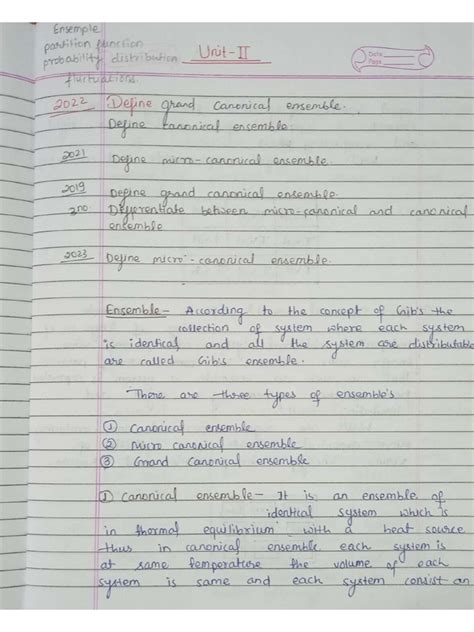 Ensemple
partition function
probability distribution Unit-II
Date
Page
fluctuations.
2022 Define grand Canonical ensemble.
Define canonical ensemble.
2021 Define micro-canonical ensemble.
2019 Define grand canonical ensemble.
2no. Differentiate between micro-canonical and canonical
ensemble
2023 Define micro-canonical ensemble.
Ensemble- According to the concept of Gib's the
collection of system where each system
is identical and all the system are distributable
are called Gib's ensemble.
There are three types of ensemble's
① Canonical ensemble
② Micro canonical ensemble
③ Grand Canonical ensemble
① Canonical ensemble- It is an ensemble of
identical system which is
in thermal equilibrium with a heat source
thus in canonical ensemble each system is
at same temperature the volume of each
system is same and each system consist an